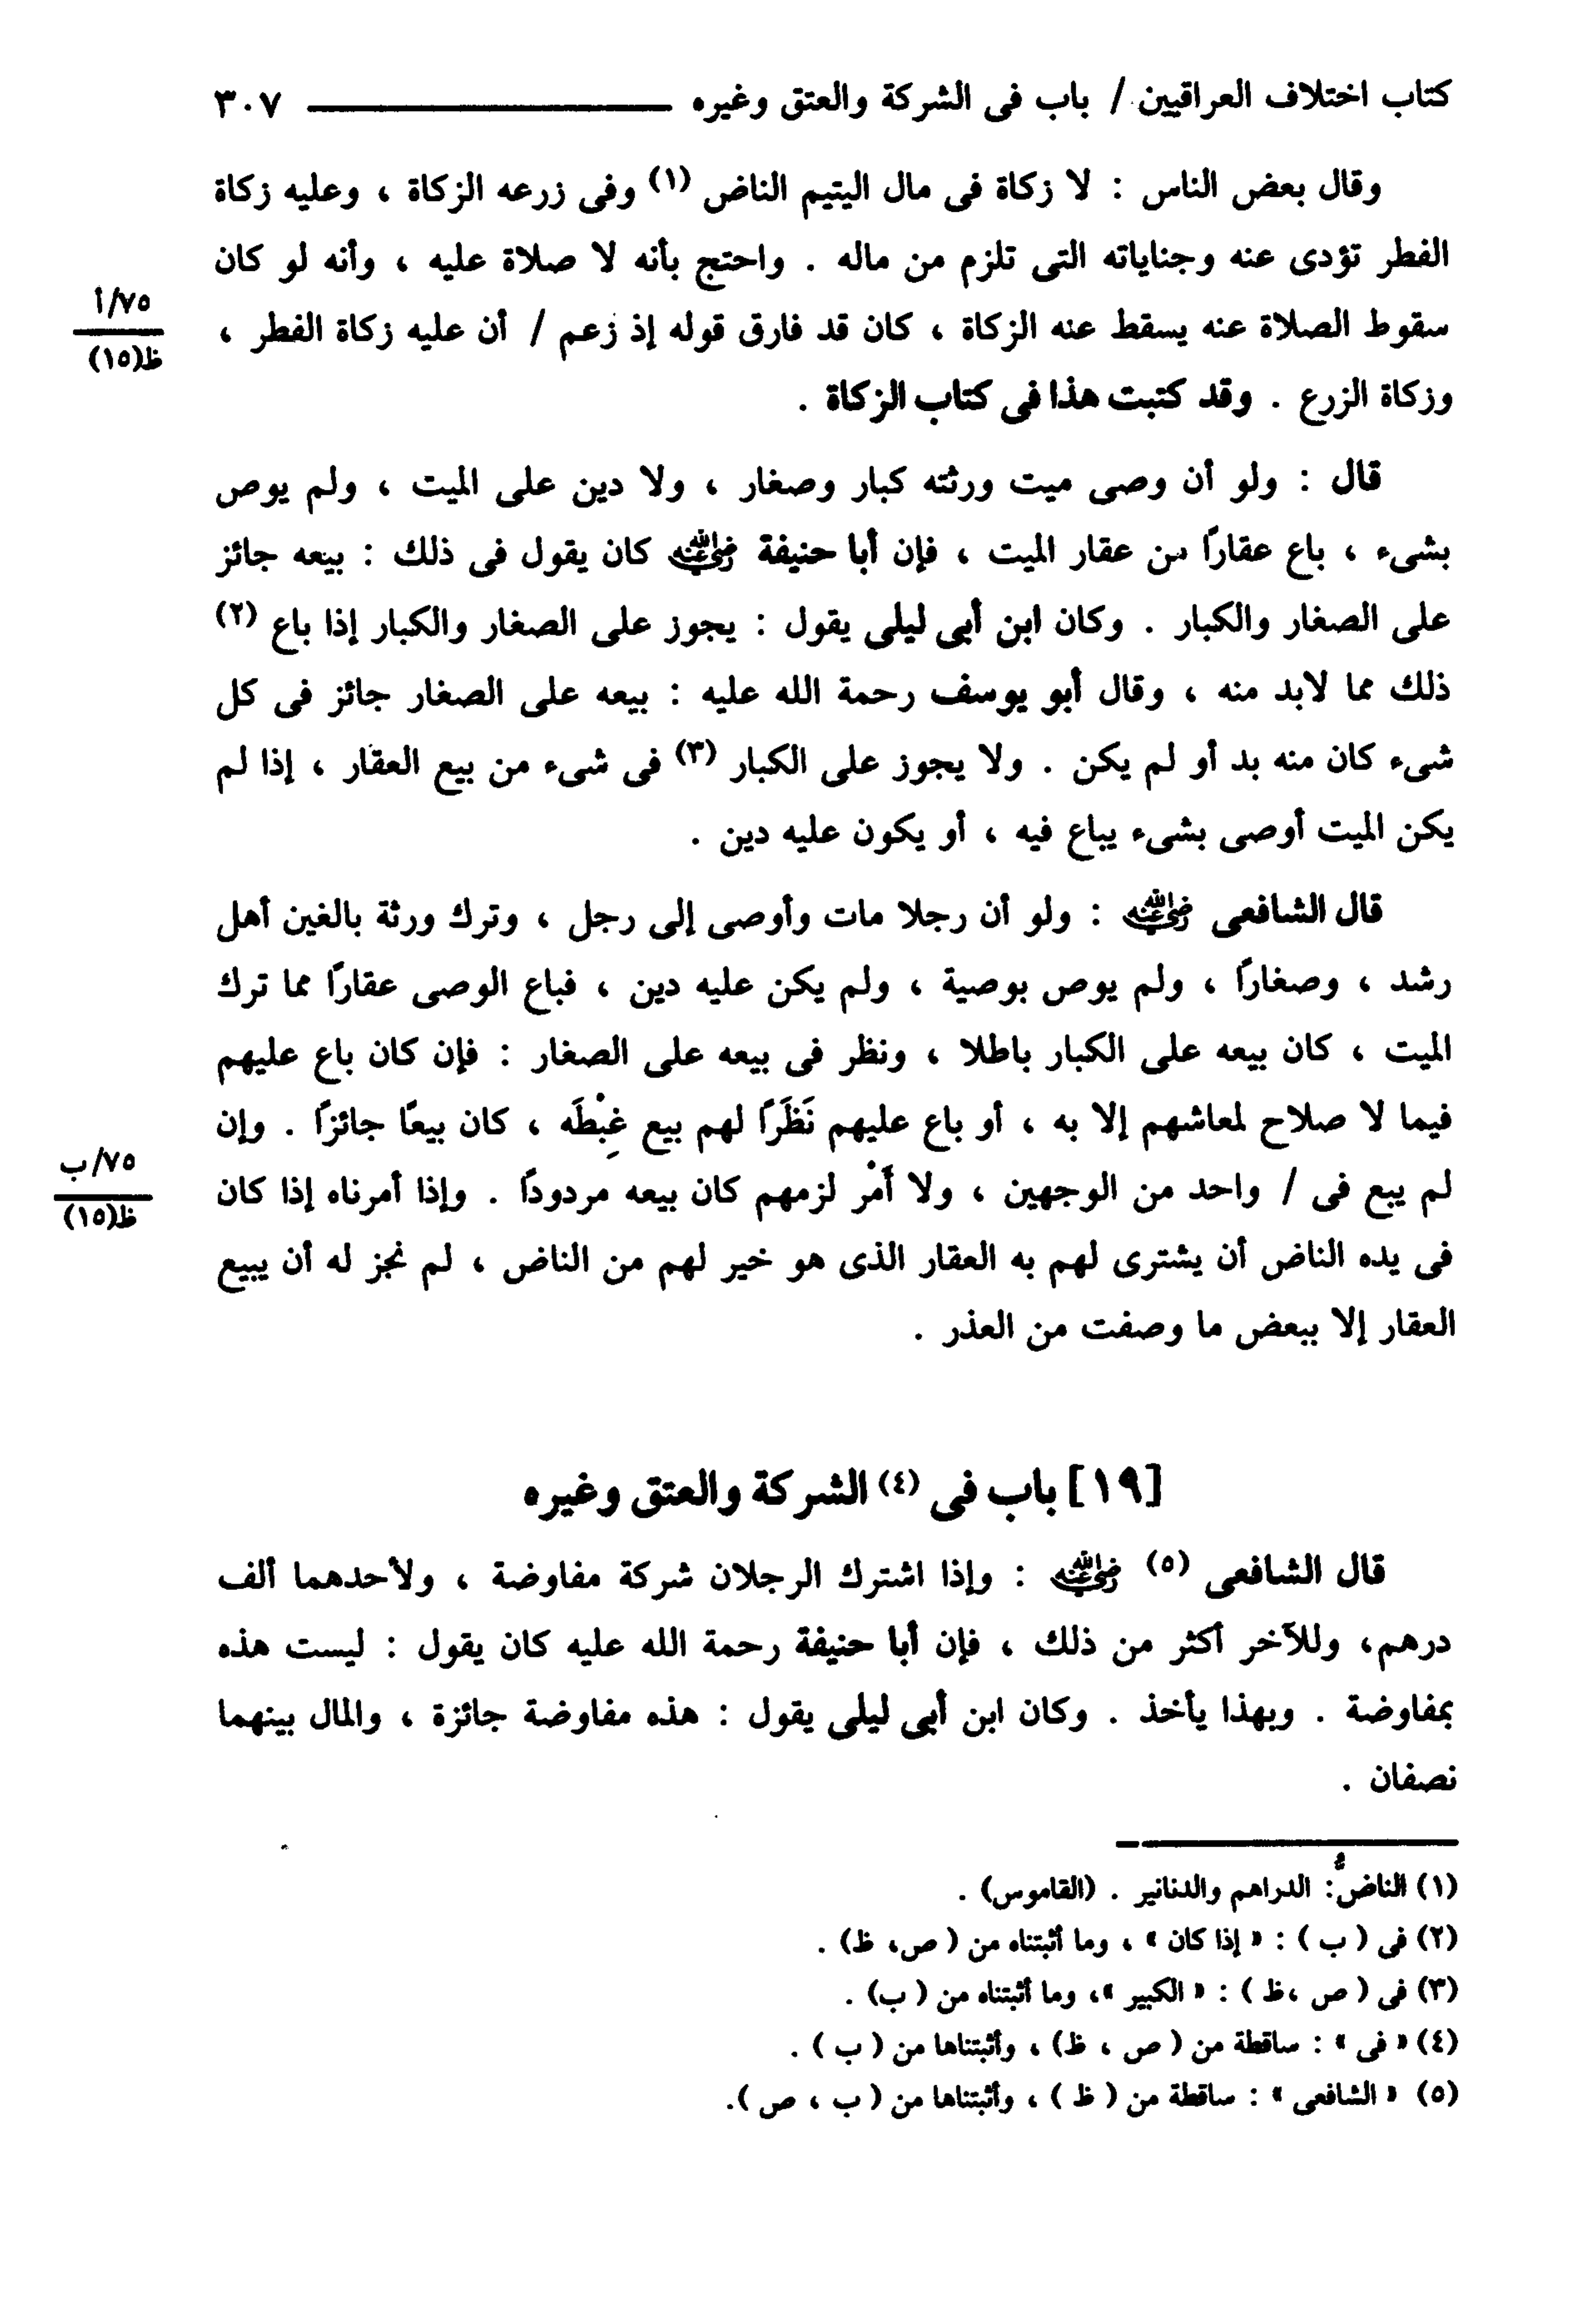 كتاب اختلاف العراقيين / باب فى الشركة والعتق وغيره ٣٠٧
وقال بعض الناس : لا زكاة فى مال اليتيم الناض (١) وفى زرعه الزكاة ، وعليه زكاة
الفطر تؤدى عنه وجناياته التى تلزم من ماله . واحتج بأنه لا صلاة عليه ، وأنه لو كان
سقوط الصلاة عنه يسقط عنه الزكاة ، كان قد فارق قوله إذ زعم / أن عليه زكاة الفطر ،
٧٥/أ
ظ(١٥)
وزكاة الزرع . وقد كتبت هذا فى كتاب الزكاة .
قال : ولو أن وصى ميت ورثته كبار وصغار ، ولا دين على الميت ، ولم يوص
بشىء ، باع عقارًا من عقار الميت ، فإن أبا حنيفة رضي الله عنه كان يقول فى ذلك : بيعه جائز
على الصغار والكبار . وكان ابن أبى ليلى يقول : يجوز على الصغار والكبار إذا باع (٢)
ذلك مما لابد منه ، وقال أبو يوسف رحمة الله عليه : بيعه على الصغار جائز فى كل
شىء كان منه بد أو لم يكن . ولا يجوز على الكبار (٣) فى شىء من بيع العقار ، إذا لم
يكن الميت أوصى بشىء يباع فيه ، أو يكون عليه دين .
قال الشافعى رضي الله عنه : ولو أن رجلا مات وأوصى إلى رجل ، وترك ورثة بالغين أهل
رشد ، وصغارًا ، ولم يوص بوصية ، ولم يكن عليه دين ، فباع الوصى عقارًا مما ترك
الميت ، كان بيعه على الكبار باطلا ، ونظر فى بيعه على الصغار : فإن كان باع عليهم
فيما لا صلاح لمعاشهم إلا به ، أو باع عليهم نَظَرًا لهم بيع غِبْطَه ، كان بيعًا جائزًا . وإن
لم يبع فى / واحد من الوجهين ، ولا أَمْر لزمهم كان بيعه مردودًا . وإذا أمرناه إذا كان
٧٥/ب
ظ(١٥)
فى يده الناض أن يشترى لهم به العقار الذى هو خير لهم من الناض ، لم نجز له أن يبيع
العقار إلا ببعض ما وصفت من العذر .
[١٩] باب فى (٤) الشركة والعتق وغيره
قال الشافعى (٥) رضي الله عنه : وإذا اشترك الرجلان شركة مفاوضة ، ولأحدهما ألف
درهم، وللآخر أكثر من ذلك ، فإن أبا حنيفة رحمة الله عليه كان يقول : ليست هذه
بمفاوضة . وبهذا يأخذ . وكان ابن أبى ليلى يقول : هذه مفاوضة جائزة ، والمال بينهما
نصفان .
(١) الناضُّ: الدراهم والدنانير . (القاموس) .
(٢) فى ( ب ) : « إذا كان » ، وما أثبتناه من ( ص، ظ) .
(٣) فى ( ص ،ظ ) : « الكبير »، وما أثبتناه من ( ب) .
(٤) « فى » : ساقطة من ( ص ، ظ) ، وأثبتناها من ( ب ) .
(٥) « الشافعى » : ساقطة من ( ظ ) ، وأثبتناها من ( ب ، ص ).